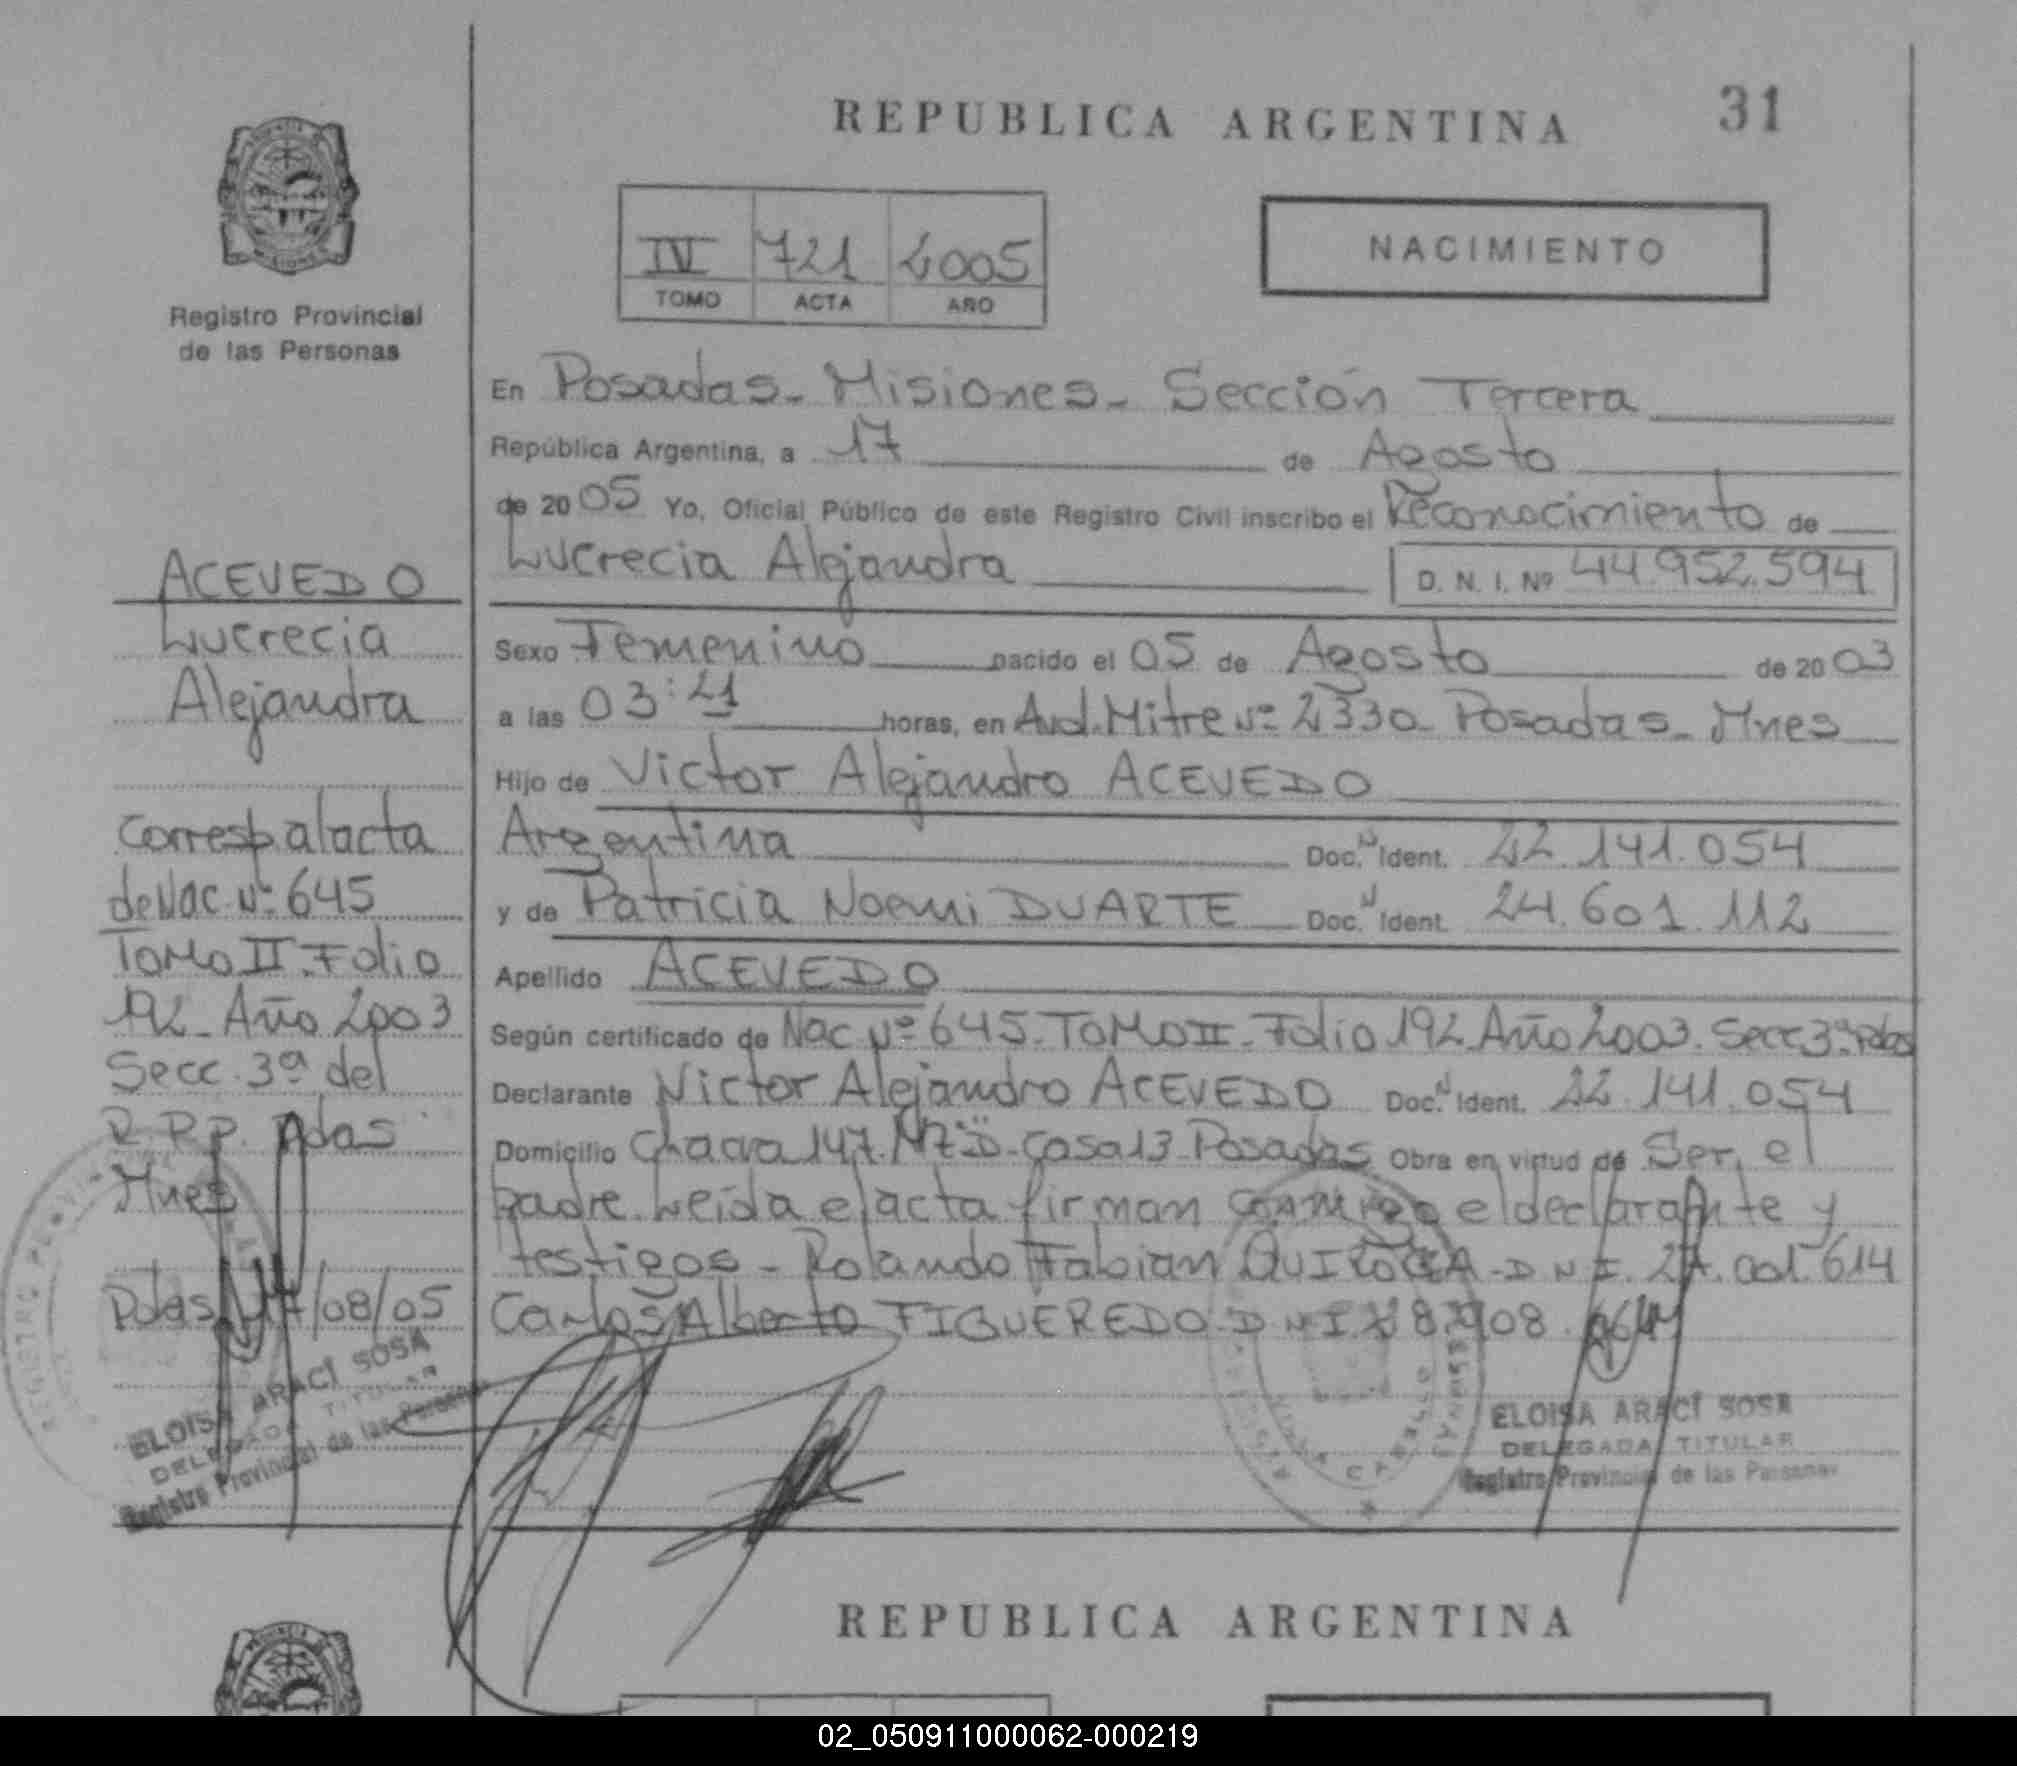 REPUBLICA ARGENTINA
31
IV 721 2005
TOMO ACTA AÑO
NACIMIENTO
Registro Provincial
de las Personas
ACEVEDO
Lucrecia
Alejandra
Corresp al acta
de Nac. Nº 645
Tomo II. Folio
192 - Año 2003
Secc. 3ª del
R.P.P. Pdas
Mnes
Pdas 17/08/05
ELOISA ARACÍ SOSA
DELEGADA TITULAR
Registro Provincial de las Personas
En Posadas - Misiones - Sección Tercera
República Argentina, a 17 de Agosto
de 2005 Yo, Oficial Público de este Registro Civil inscribo el Reconocimiento de
Lucrecia Alejandra D. N. I. Nº 44.952.594
Sexo Femenino nacido el 05 de Agosto de 2003
a las 03:21 horas, en Avd. Mitre Nº 2330 - Posadas - Mnes
Hijo de Victor Alejandro ACEVEDO
Argentina Doc. N Ident. 22.141.054
y de Patricia Noemi DUARTE Doc. N Ident. 24.601.112
Apellido ACEVEDO
Según certificado de Nac Nº 645 - Tomo II - Folio 192 Año 2003. Secc 3ª Pdas
Declarante Victor Alejandro ACEVEDO Doc. N Ident. 22.141.054
Domicilio Chacra 147. Mz "D" - Casa 13 - Posadas Obra en virtud de Ser el
padre. Leída el acta firman conmigo el declarante y
testigos - Rolando Fabian QUIROGA - DNI. 27.001.614
Carlos Alberto FIGUEREDO DNI 908
ELOISA ARACÍ SOSA
DELEGADA TITULAR
Registro Provincial de las Personas
REPUBLICA ARGENTINA
02_050911000062-000219